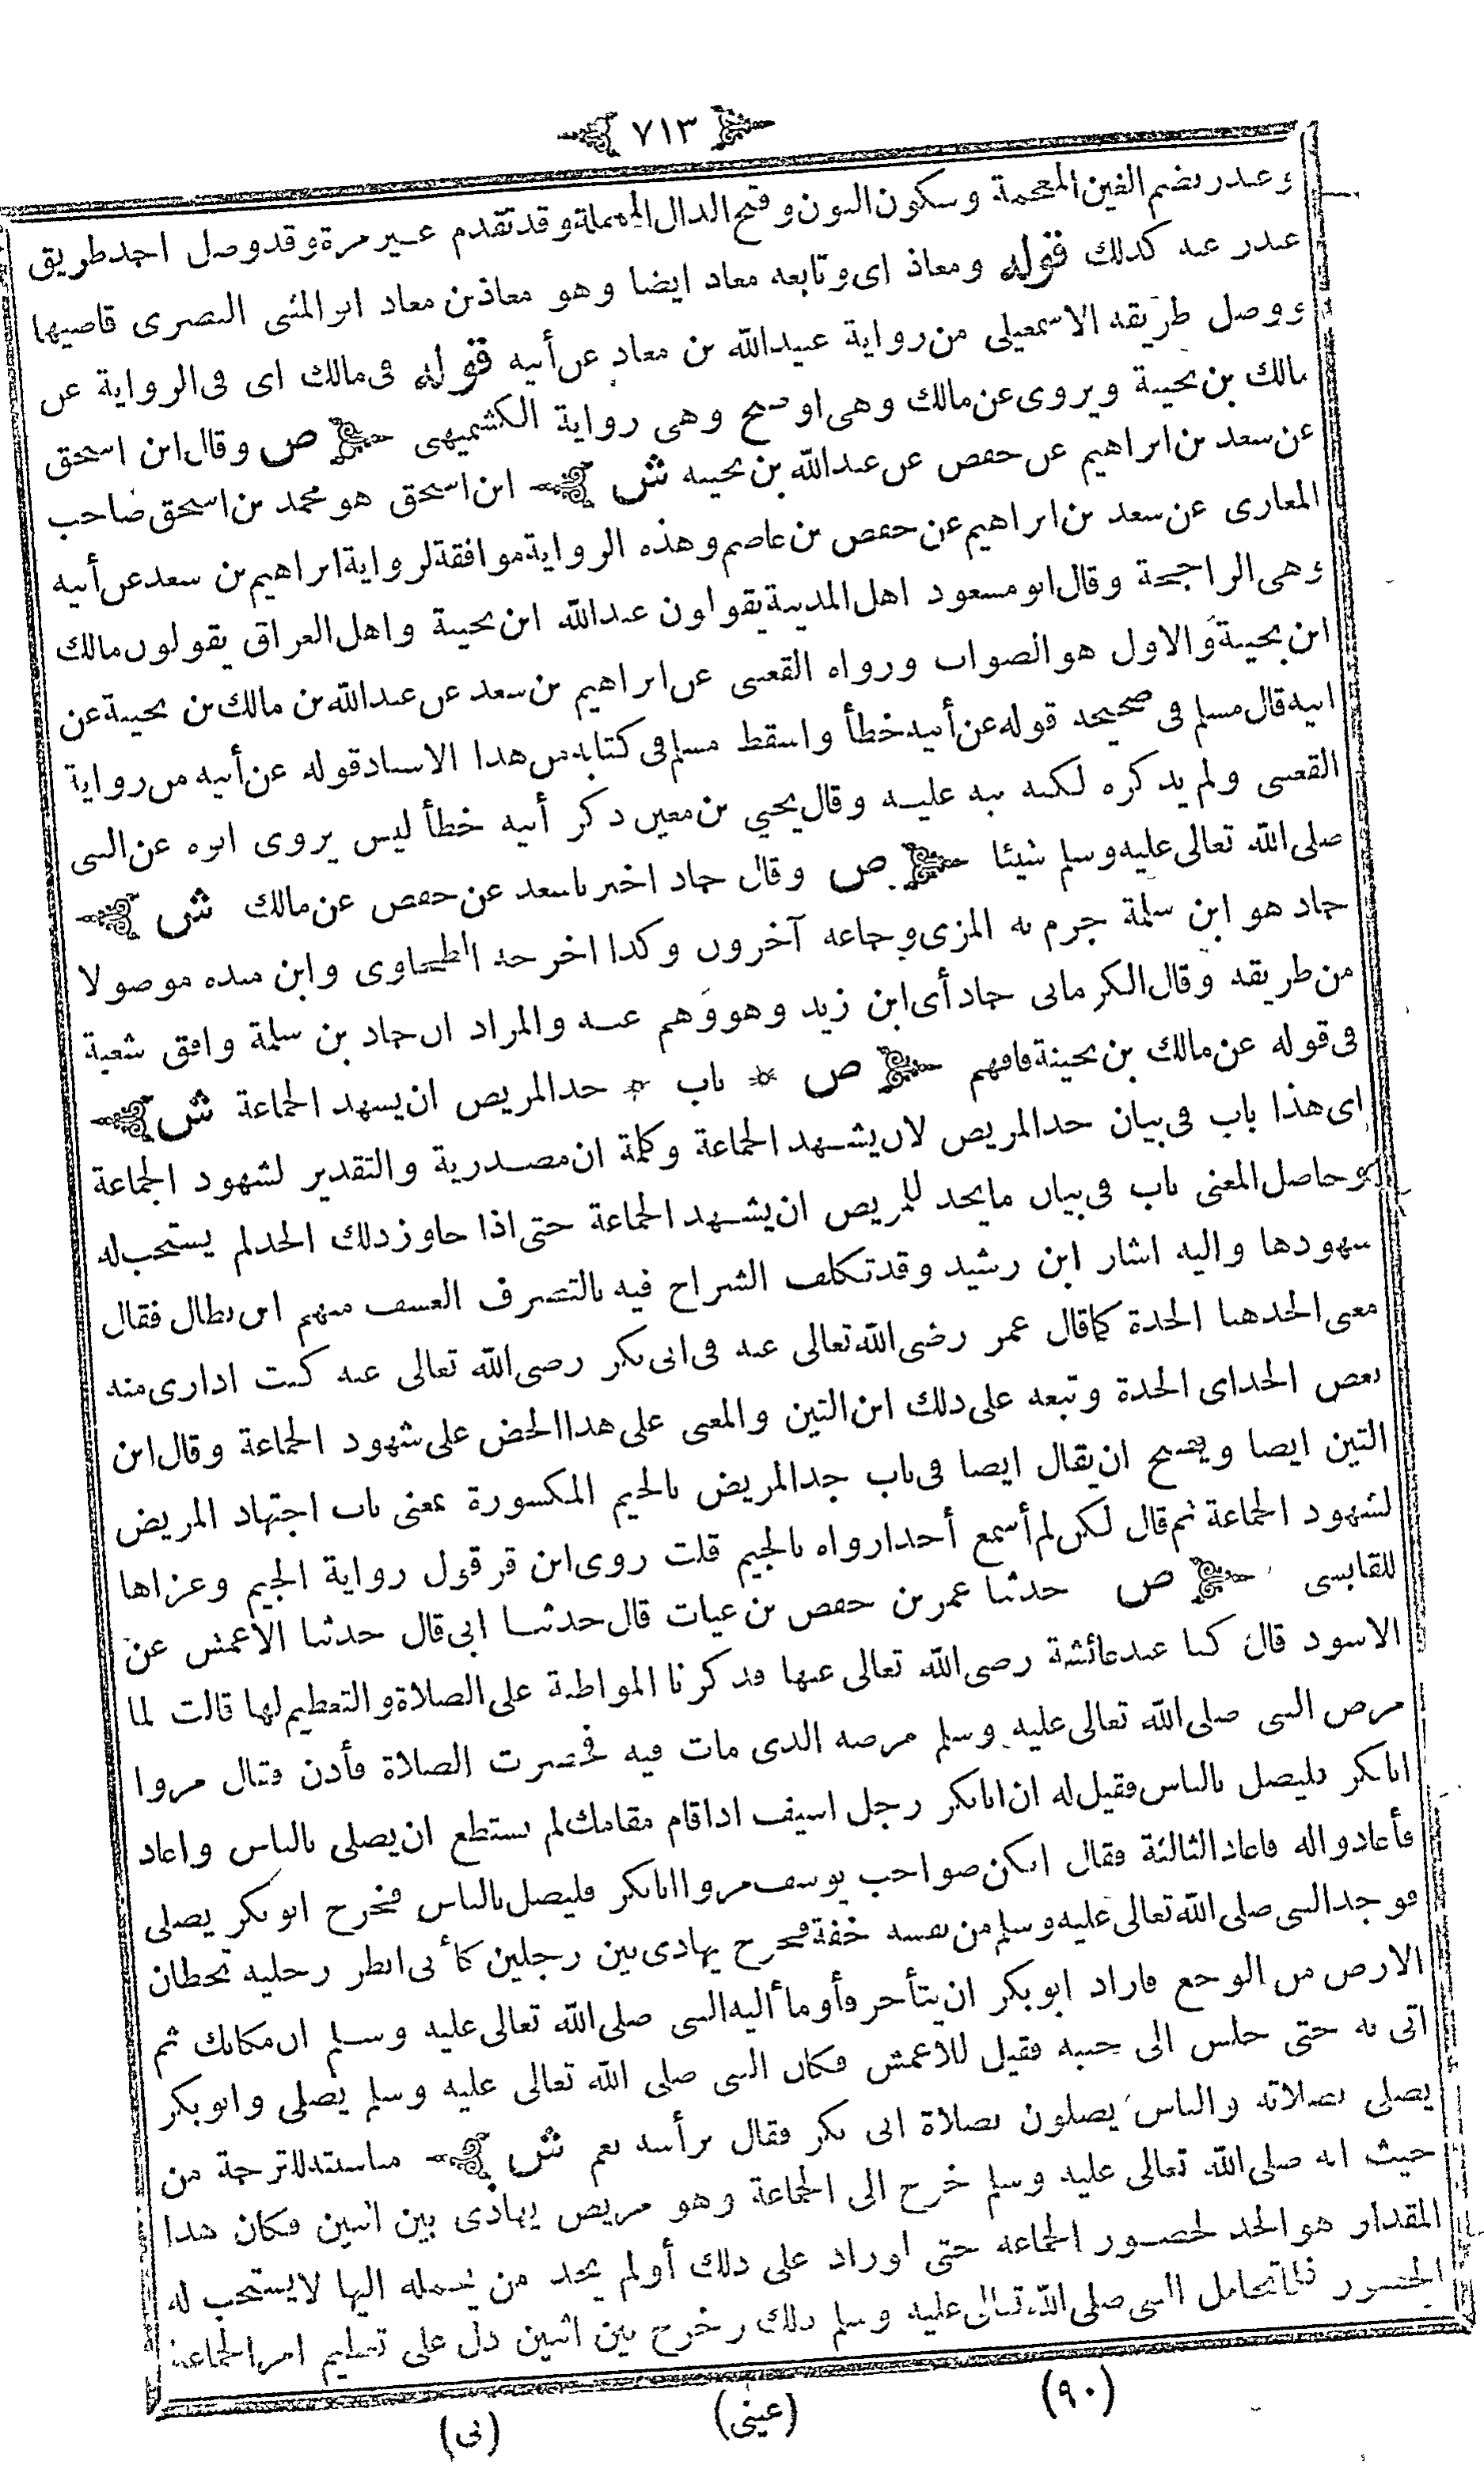 ٧١٣
وغندر بضم الغين المعجمة وسكون النون وفتح الدال المهملة وقد تقدم غير مرة وقد وصل احمد طريق
غندر عنه كذلك قوله ومعاذ اى وتابعه معاذ ايضا وهو معاذ بن معاذ ابو المثنى البصرى قاضيها
ووصل طريقه الاسمعيلى من رواية عبيدالله بن معاذ عن أبيه قوله فى مالك اى فى الرواية عن
مالك بن بحينة ويروى عن مالك وهى اوضح وهى رواية الكشميهنى ص وقال ابن اسحق
عن سعد بن ابراهيم عن حفص عن عبدالله بن بحينه ش ابن اسحق هو محمد بن اسحق صاحب
المغازى عن سعد بن ابراهيم عن حفص بن عاصم وهذه الرواية موافقة لرواية ابراهيم بن سعد عن أبيه
وهى الراجحة وقال ابو مسعود اهل المدينة يقولون عبدالله ابن بحينة واهل العراق يقولون مالك
ابن بحينة والاول هو الصواب ورواه القعنبى عن ابراهيم بن سعد عن عبدالله بن مالك بن بحينة عن
ابيه قال مسلم فى صحيحه قوله عن أبيه خطأ واسقط مسلم فى كتابه من هذا الاسناد قوله عن أبيه من رواية
القعنبى ولم يذكره لكنه نبه عليه وقال يحيى بن معين ذكر أبيه خطأ ليس يروى ابوه عن النبى
صلى الله تعالى عليه وسلم شيئا ص وقال حماد اخبرنا سعد عن حفص عن مالك ش
حماد هو ابن سلمة جزم به المزى وجماعه آخرون وكذا اخرجه الطحاوى وابن منده موصولا
من طريقه وقال الكرمانى حماد أى ابن زيد وهو وهم عنه والمراد ان حماد بن سلمة وافق شعبة
فى قوله عن مالك بن بحينة فافهم ص * باب * حد المريض ان يشهد الجماعة ش
اى هذا باب فى بيان حد المريض لان يشهد الجماعة وكلمة ان مصدرية والتقدير لشهود الجماعة
وحاصل المعنى باب فى بيان ما يحد للمريض ان يشهد الجماعة حتى اذا جاوز ذلك الحد لم يستحب له
شهودها واليه اشار ابن رشيد وقد تكلف الشراح فيه بالتصرف العسف منهم ابن بطال فقال
معنى الحد هنا الحدة كما قال عمر رضى الله تعالى عنه فى ابى بكر رضى الله تعالى عنه كنت ادارى منه
بعض الحد اى الحدة وتبعه على ذلك ابن التين والمعنى على هذا الحض على شهود الجماعة وقال ابن
التين ايضا ويصح ان يقال ايضا فى باب جد المريض بالجيم المكسورة بمعنى باب اجتهاد المريض
لشهود الجماعة ثم قال لكن لم أسمع أحدا رواه بالجيم قلت روى ابن قرقول رواية الجيم وعزاها
للقابسى ص حدثنا عمر بن حفص بن غياث قال حدثنا ابى قال حدثنا الاعمش عن
الاسود قال كنا عند عائشة رضى الله تعالى عنها فذكرنا المواظبة على الصلاة والتعظيم لها قالت لما
مرض النبى صلى الله تعالى عليه وسلم مرضه الذى مات فيه فحضرت الصلاة فأذن فقال مروا
ابابكر فليصل بالناس فقيل له ان ابابكر رجل اسيف اذا قام مقامك لم يستطع ان يصلى بالناس واعاد
فأعادوا له فاعاد الثالثة فقال انكن صواحب يوسف مروا ابابكر فليصل بالناس فخرج ابو بكر يصلى
فوجد النبى صلى الله تعالى عليه وسلم من نفسه خفة فخرج يهادى بين رجلين كأنى انظر رجليه تخطان
الارض من الوجع فاراد ابو بكر ان يتأخر فأومأ اليه النبى صلى الله تعالى عليه وسلم ان مكانك ثم
اتى به حتى جلس الى جنبه فقيل للاعمش فكان النبى صلى الله تعالى عليه وسلم يصلى وابو بكر
يصلى بصلاته والناس يصلون بصلاة ابى بكر فقال برأسه نعم ش مناسبته للترجمة من
حيث انه صلى الله تعالى عليه وسلم خرج الى الجماعة وهو مريض يهادى بين اثنين فكان هذا
المقدار هو الحد لحضور الجماعه حتى لوزاد على ذلك أو لم يجد من يحمله اليها لا يستحب له
الحضور فلما تحامل النبى صلى الله تعالى عليه وسلم ذلك وخرج بين اثنين دل على تعظيم امر الجماعة
(٩٠) (عينى) (نى)